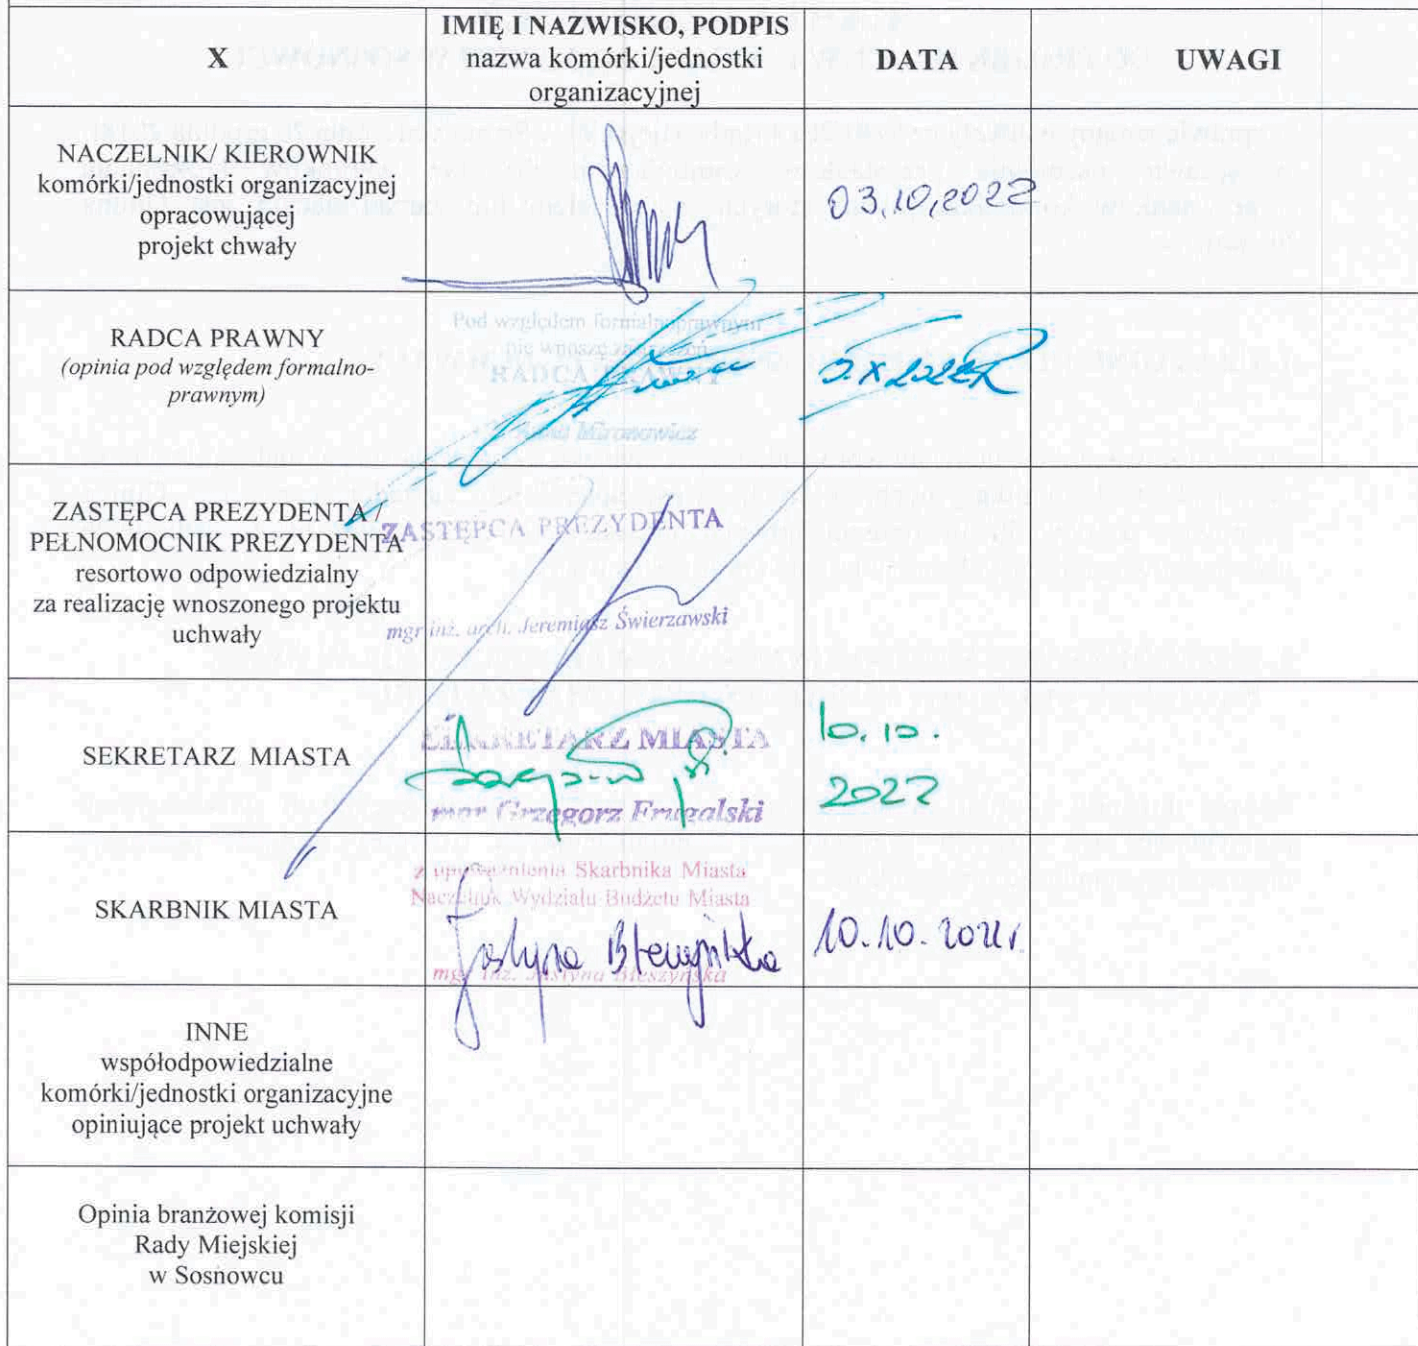 X
IMIĘ I NAZWISKO, PODPIS
nazwa komórki/jednostki
organizacyjnej
DATA
UWAGI
NACZELNIK/ KIEROWNIK
komórki/jednostki organizacyjnej
opracowującej
projekt chwały
03.10.2022
RADCA PRAWNY
(opinia pod względem formalno-
prawnym)
Pod względem formalnoprawnym
nie wnoszę zastrzeżeń
RADCA PRAWNY
Mironowicz
5.X.2022R
ZASTĘPCA PREZYDENTA /
PEŁNOMOCNIK PREZYDENTA
resortowo odpowiedzialny
za realizację wnoszonego projektu
uchwały
ZASTĘPCA PREZYDENTA
mgr inż. arch. Jeremiasz Świerzawski
SEKRETARZ MIASTA
SEKRETARZ MIASTA
mgr Grzegorz Frugalski
10.10.
2022
SKARBNIK MIASTA
z upoważnienia Skarbnika Miasta
Naczelnik Wydziału Budżetu Miasta
Justyna Błeszyńska
mgr inż. Justyna Błeszyńska
10.10.2022r.
INNE
współodpowiedzialne
komórki/jednostki organizacyjne
opiniujące projekt uchwały
Opinia branżowej komisji
Rady Miejskiej
w Sosnowcu